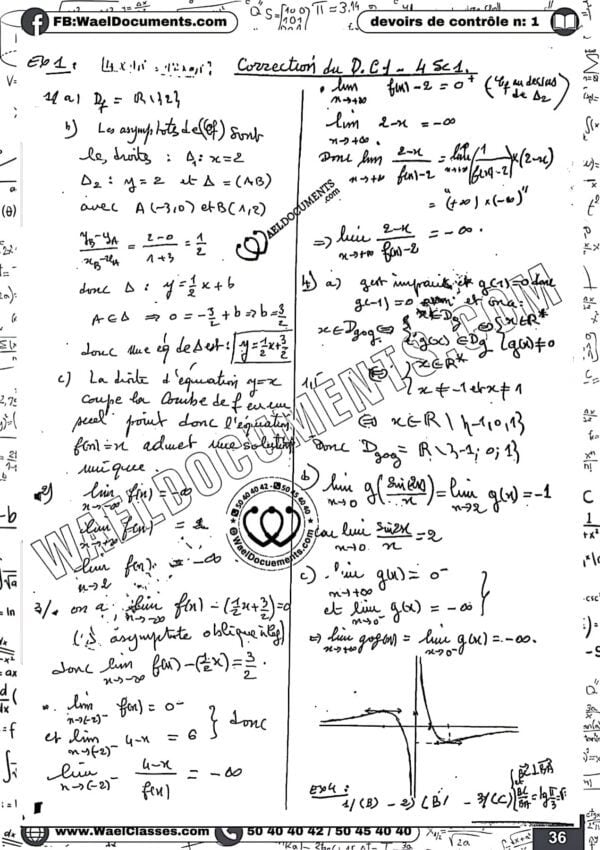 FB:WaelDocuments.com
devoirs de contrôle n: 1
Correction du D.C1 - 4 Sc1.
Exo 1 :
1/ a) Df = ℝ \ {2}
b) Les asymptots de (Cf) sont
les droits : Δ1: x = 2
Δ2 : y = 2 et Δ = (AB)
avec A(-3,0) et B(1,2)
= (2-0)/(1+3) = 1/2
donc Δ : y = 1/2 x + b
A ∈ Δ ⇒ 0 = -3/2 + b ⇒ b = 3/2
donc une éq de Δ est : y = 1/2 x + 3/2
c) La droite d'équation y = x
coupe la courbe de f en un
seul point donc l'équation
f(x) = x admet une solution
unique.
2) lim x→-∞ f(x) = -∞
lim x→+∞ f(x) = 2
lim x→2 f(x) = -∞
3/. on a : lim x→-∞ f(x) - (1/2 x + 3/2) = 0
asymptote oblique
donc lim x→-∞ f(x) - (1/2 x) = 3/2.
lim x→(-2)⁻ f(x) = 0⁻
et lim x→(-2)⁻ 4-x = 6 } donc
lim x→(-2)⁻ (4-x)/f(x) = -∞
• lim x→+∞ f(x) - 2 = 0⁺ (Cf au dessus
de Δ2)
lim x→+∞ 2-x = -∞
Donc lim x→+∞ (2-x)/(f(x)-2) = lim x→+∞ (1/(f(x)-2)) × (2-x)
= "(+∞) × (-∞)"
⇒ lim x→+∞ (2-x)/(f(x)-2) = -∞.
4) a) g est impaire et g(1) = 0 donc
g(-1) = 0 et on a :
x ∈ Dgog ⇔ { x ∈ Dg ; g(x) ∈ Dg ⇔ { x ∈ ℝ* ; g(x) ≠ 0
⇔ { x ∈ ℝ* ; x ≠ -1 et x ≠ 1
1,5
⇔ x ∈ ℝ \ {-1,0,1}
Donc Dgog = ℝ \ {-1; 0; 1}
b) lim x→0 g(sin(2x)/x) = lim x→2 g(x) = -1
car lim x→0 sin2x/x = 2
c) lim x→+∞ g(x) = 0⁻
et lim x→0⁻ g(x) = -∞ }
⇒ lim x→+∞ gof(x) = lim x→0⁻ g(x) = -∞.
Exo 4 :
1/ (B) - 2/ (B) - 3/ (C)
WAELDOCUMENTS.COM
WAELDOCUMENTS.com
50 40 40 42 - 50 45 40 40
@WaelDocuements.com
www.WaelClasses.com
50 40 40 42 / 50 45 40 40
36